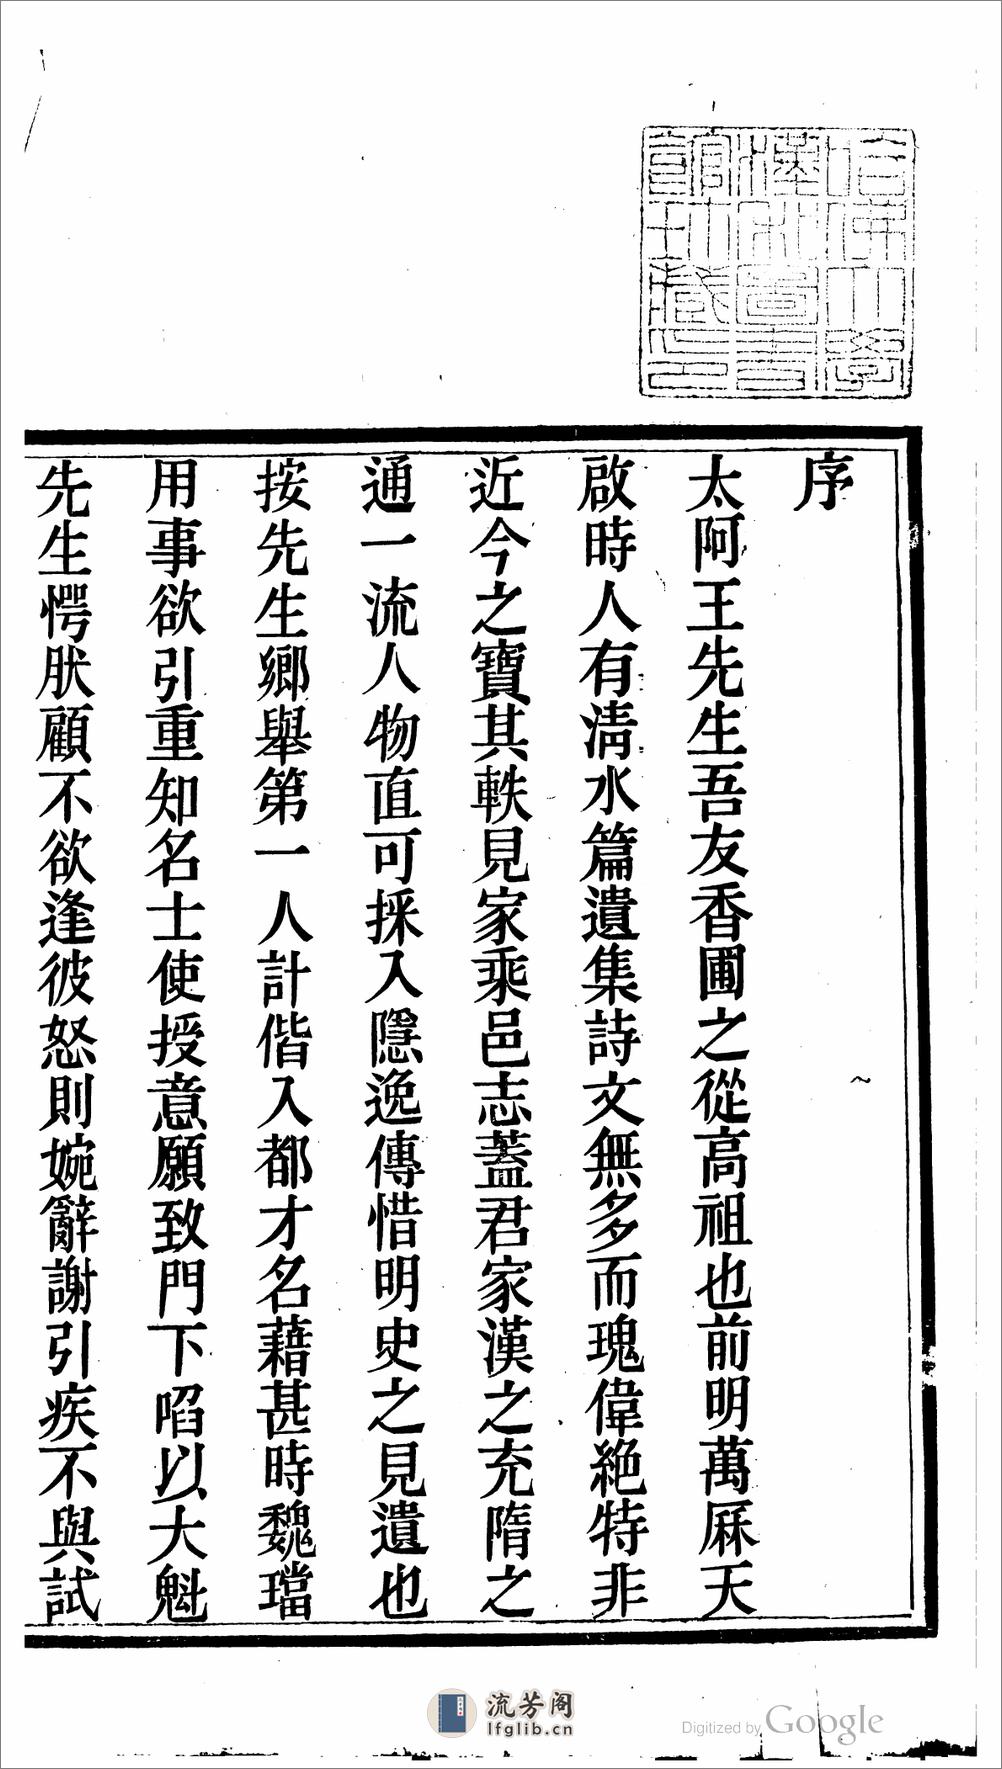 序
太阿王先生吾友香圃之從高祖也前明萬厤天
啟時人有淸水篇遺集詩文無多而瑰偉絶特非
近今之寶其軼見家乘邑志蓋君家漢之充隋之
通一流人物直可採入隱逸傳惜明史之見遺也
按先生鄉舉第一人計偕入都才名藉甚時魏璫
用事欲引重知名士使授意願致門下啗以大魁
先生愕肰顧不欲逢彼怒則婉辭謝引疾不與試
哈佛大學
漢和圖書
館珍藏印
流芳阁
lfglib.cn
Digitized by Google